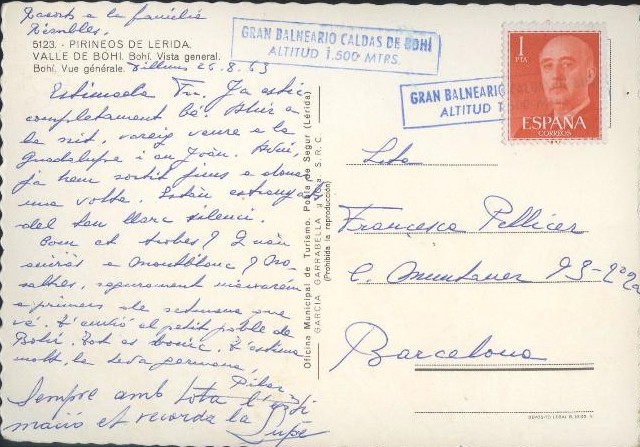 Records a la família
Riballes.
5123. - PIRINEOS DE LERIDA.
VALLE DE BOHI. Bohí. Vista general.
Bohí. Vue générale. Dilluns 26.8.63
Estimada Fr. Ja estic
completament bé. Ahir a
la nit, vareig veure a la
Guadalupe i en Joan. Avui,
ja hem sortit fins a donar
una volta. Estan
del teu llarc silenci.
Com et trobes? Quan
aniràs a Montblanc? No-
saltres, segurament marxarem
a primers de setmana que
vé. T'envio el petit poble de
Bohí. Tot es bonic. T'estima
molt, la teva germana,
Pilar
Sempre amb tota l'
et recorda la
Lupe
Oficina Municipal de Turismo. Pobla de Segur (Lérida)
GARCIA GARRABELLA y Cía. S. R. C.
(Prohibida la reproducción)
GRAN BALNEARIO CALDAS DE BOHÍ
ALTITUD 1.500 MTRS.
GRAN BALNEARIO
ALTITUD 1
1
PTA
ESPAÑA
CORREOS
Srta
Francesca Pellicer
C. Muntaner 93-2º 2ª
Barcelona